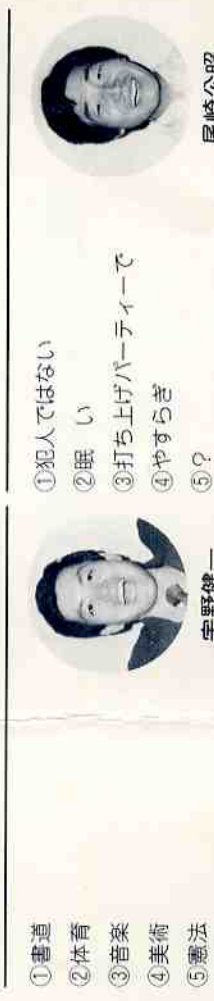 ①書道
②体育
③音楽
④美術
⑤憲法
宇野健一
①犯人ではない
②眠　い
③打ち上げパーティーで
④やすらぎ
⑤？
尾崎公昭